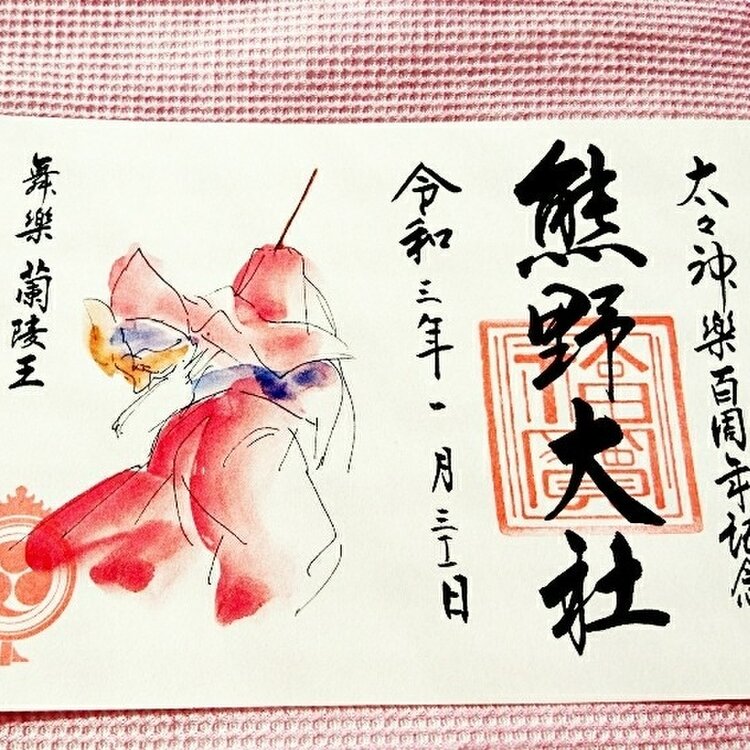 太々神樂百周年記念
熊野大社
令和三年一月三十一日
舞樂 蘭陵王